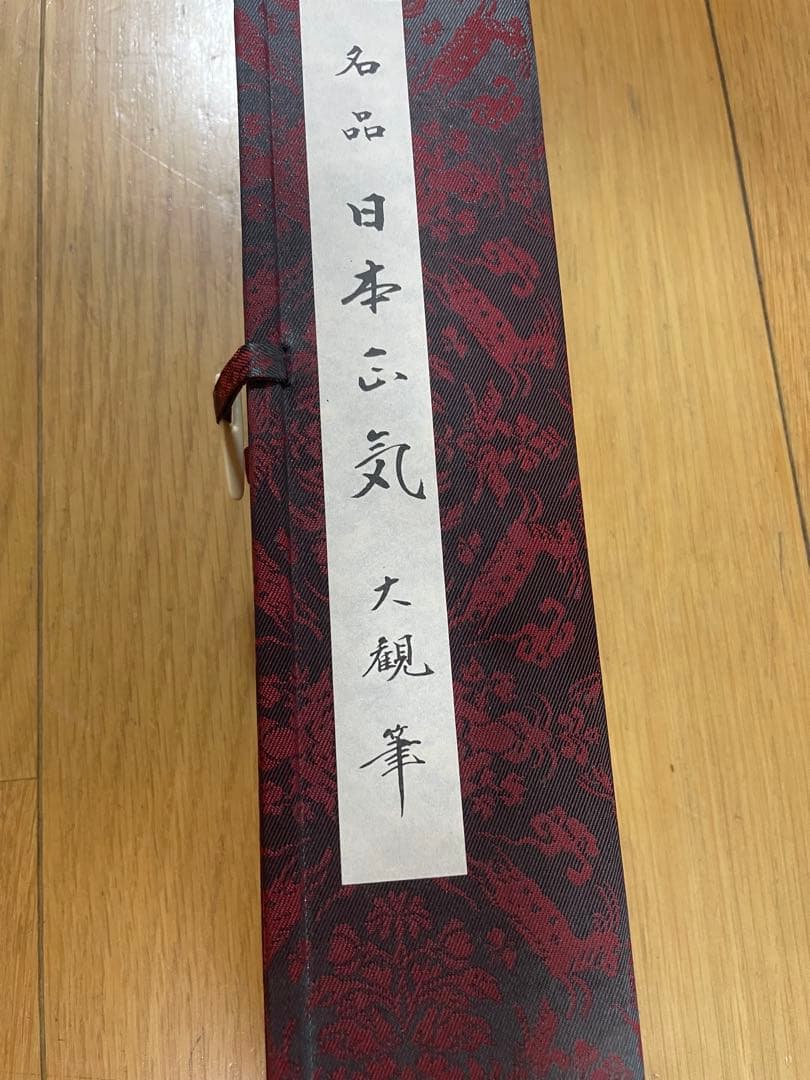 名品 日本正気 大観筆